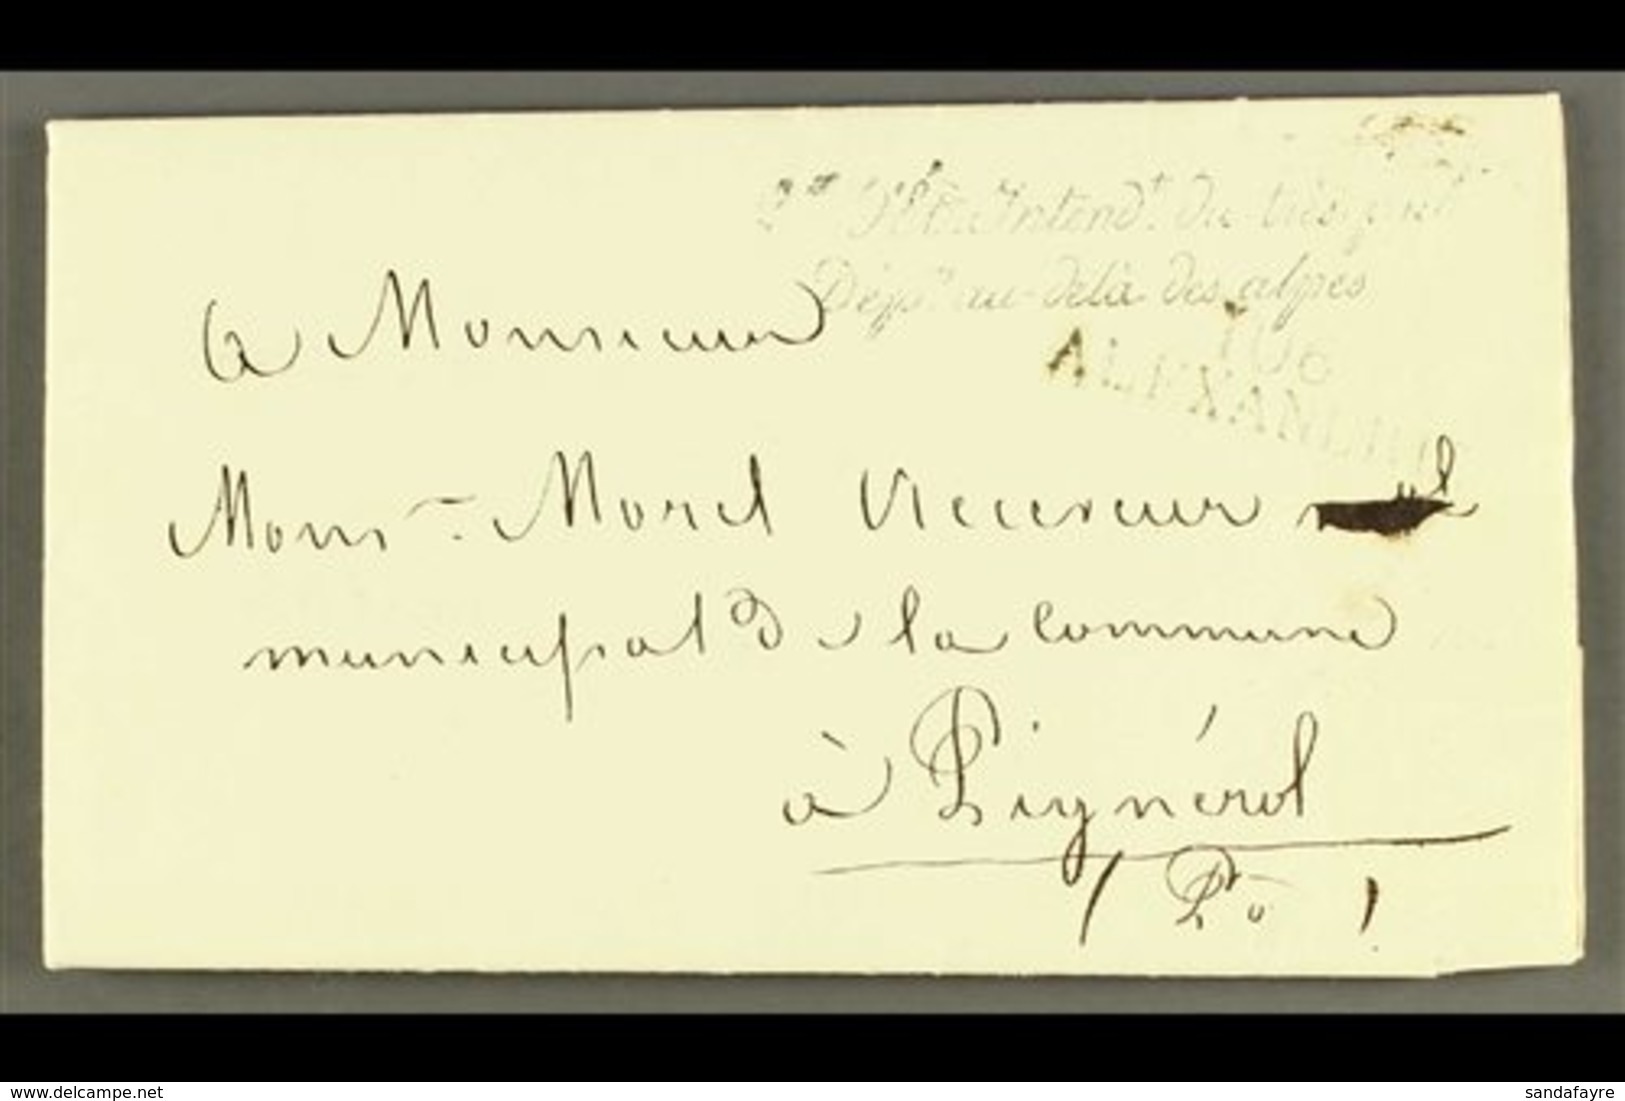 Intend.t du trés. pub.
Dép.ts au-delà des alpes
106
ALEXANDRIE
a Monsieur
Mons.r Morel Receveur
municipal de la Commune
à Pignérol
(Pô)
www.delcampe.net
sandafayre